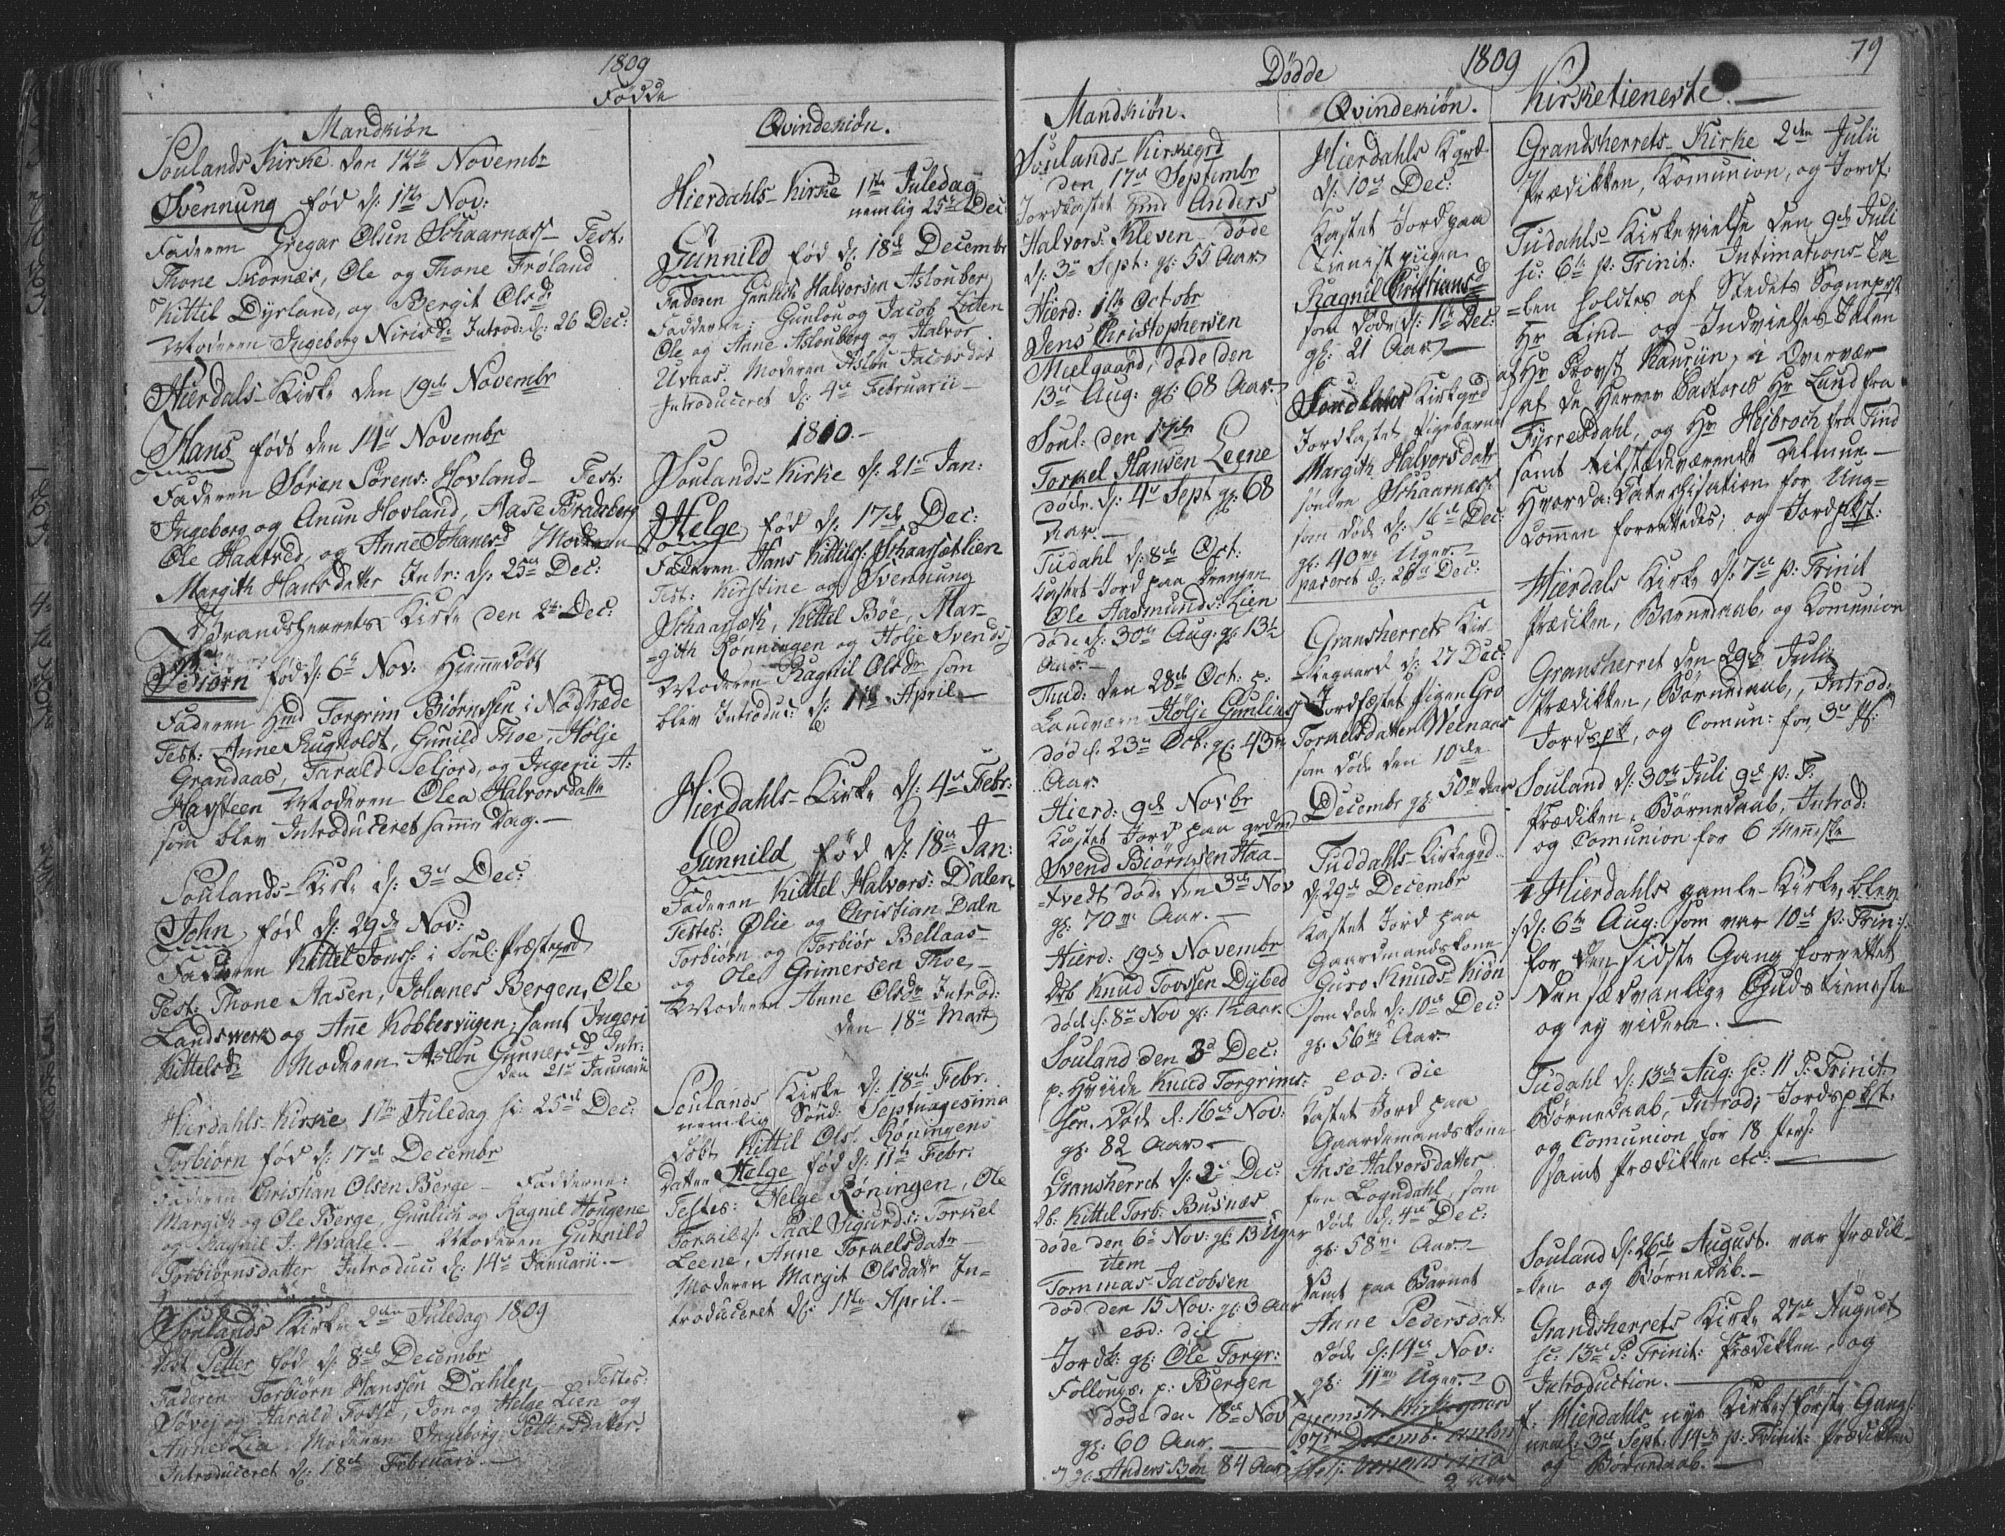 1809
Fødde
Mandkiön
Soulands Kirke den 12te Novembr
Svennung fød d: 1ste Nov:
Faderen Gregar Olsen Schaarnæs Test:
Thone Skornæs, Ole og Thone Frøland
Kittil Dyrland, og Bergit Olsd:
Moderen Ingeborg Introd: d: 26 Dec:
Hierdals Kirke den 19de Novembr
Hans født den 14de Novembr
Faderen Søren Sørens: Hovland Test:
Ingeborg og Anun Hovland, Aase Bradeberg
Ole Haatved, og Anne Johanesd Moderen
Margith Hansdatter Intr: d: 25de Dec:
Grandsherrets Kirke den 2de Dec:
Biørn fød d: 6te Nov: Hiemmedøbt
Faderen Hmd Torgrim Biørnssen i Nødstræde
Test: Anne Rugholdt, Gunild Thoe, Hølje
Grandaas, Tarald Seljord, og Ingerii A:
Havsteen Moderen Olea Halvorsdatter
som blev Introduceret samme Dag.
Soulands Kirke d: 3de Dec:
John fød d: 29de Nov:
Faderen Kittel Jons: i Soul: Præstegrd
Test: Thone Aasen, Johanes Bergen, Ole
Landswerk og Anne Kobbervigen; samt Ingeri
Kittelsdr Moderen Aslou Gunnersd Intr:
den 21de Januarii
Hierdahls Kirke 1ste Juledag sc: 25de Dec:
Torbiørn fød d: 17de Decembr
Faderen Christian Olsen Berge Fadderne:
Margith og Ole Berge, Gunlich og Ragnil Høngene
og Ragnil J: Hvaale. Moderen Gunnild
Torbiörnsdatter Introduci d: 14de Januarii.
Soulands Kirke 2den Juledag 1809
døbt Petter fød d: 8de Decembr
Faderen Torbiørn Hanssen Dahlen Testes:
Søvej og Harald Fosse, Jon og Helge Lien og
Anne Lia. Moderen Ingeborg Pettersdatter.
Introduceret d: 18de Februarii.
Qvindekiön.
Hierdahls Kirke 1ste Juledag
nemlig 25de Dec
Gunnild fød d: 18de Decembr
Faderen Gunlich Halvorsen Aslonberg
Fadderne: Gunlou og Jacob Lien
Ole og Anne Aslonberg og Halvor
Uvaas. Moderen Aslou Jacobsdtr
Introduceret d: 4de Februarii
1810.
Soulands Kirke d: 21de Jan:
Helge fød d: 17de Dec:
Faderen Hans Kittils: Schaarsætlien
Test: Kirstine og Svennung
Schaarsæth, Kittel Bøe, Mar-
gith Rönningen og Hølje Svends
Moderen Ragnil Olsdr som
blev Introduc: d: 1ste April
Hierdahls Kirke d: 4de Febr:
Gunnild fød d: 18de Jan:
Faderen Kittel Halvors: Dalen
Testes: Ølie og Christian Daln
Torbiørn og Torbiör Bellaas
og Ole Grimersen Thoe
Moderen Anne Olsdr Introd:
den 18de Marti
Soulands Kirke d: 18de Febr.
nemlig Sønd: Septuagesima
døbt Kittil Ols: Røningens
Datter Helge fød d: 11te Febr:
Testes: Helge Røningen, Ole
Torkils: Paal Sigurds: Torkel
Leene, Anne Torkelsdatr
Moderen Margit Olsdatr In-
troduceret d: 1ste April.
Dødde 1809
79
Mandkiön.
Soulands Kirkegrd
den 17de Septembr
Jordkastet Hmd Anders
Halvors: Kleven døde
d: 3de Sept: gl: 55 Aar
Hierd: 1ste Octobr
Jens Christophersen
Mielgaard, døde den
13de Aug: gl: 68 Aar.
Soul: den 17de
Torkel Hansen Leene
døde d: 4de Sept gl: 68
Aar.
Tudahl d: 8de Oct:
kastet Jord paa Drengen
Ole Aasmunds: Lien
døde d: 30te Aug: gl: 13½
Aar.
Thud: den 28de Oct: p:
Landværn Hølje Gunlius
død d: 23de Oct: gl: 43
Aar.
Hierd: 9de Novbr
kastet Jord paa grdmd
Svend Biörnsen Haa-
tvedt døde den 3de Nov
gl: 70 Aar.
Hierd: 19de Novembr
Db Knud Tovssen Dybed
død d: 8de Nov gl: 1½ Aar.
Souland den 3de Dec:
p: Hviide Knud Torgrims:
sen. døde d: 16de Nov:
gl: 82 Aar
Gransherret d: 2de Dec:
Db: Kittil Torb: Busnæs
døde den 6te Nov: gl: 13 Uger
item
Tommas Jacobsen
død den 15 Nov: gl: 3 Aar
eod: die
Jordk: gl: Ole Torgr:
Follongs: p: Bergen
døde den 18de Nov
gl: 60 Aar.
Anders Bøn 84 Aar
Qvindekiön.
Hierdahls Kgrd
d: 10de Dec:
kastet Jord paa
Tienistpiigen
Ragnil Cristiansd
som døde d: 1ste Dec:
gl: 21 Aar
Soulands Kirkgrd
Jordkastet Pigebarnet
Margith Halvorsdatr
søndre Schaarnæs:
som døde d: 16de Dec:
gl: 40 Uger.
Gransherrets Kir-
kegaard d: 27 Dec:
Jordfæstet Pigen Gro
Torkelsdatter Weenaas
som døde den 10de
Decembr gl: 50 Aar
Tuddahls Kirkegrd
d: 29de Decembr
kastet Jord paa
Gaardmandskone
Guro Knuds Kiøn
som døde d: 10de Dec:
gl: 56 Aar
eod: die
kastet Jord paa
Gaardemandskone
Anse Halvorsdatter
fra Logndahl, som
døde d: 4de Dec:
gl: 58 Aar
samt paa Barnet
Anne Pedersdat:
døde d: 14de Nov:
gl: 11 Uger.
2 Aar
Kirketieneste.
Grandsherrets Kirke 2den Julii
Prædikken, Komunion, og Jords:
Tudahls Kirkevielse den 9de Juli
sc: 6te p: Trinit: Intimations-Ta
len holdtes af Stedets Sognepræst
Hr Lind og Indvielses Talen
af Hr Provst Kaurin, i Overvær
af de Herrer Pastores Hr Lund fra
Tyrresdahl, og Hr Hejbroch fra Tind
samt tilstædeværende Almue
Hvorda Catechisation for Ung-
dommen forrettedes; og Jordspkst:
Hierdals Kirke d: 7de p: Trinit
Prædiken, Barnedaab, og Komunion
Gransherret den 29de Julii
Prædikken, Børnedaab, Introd:
Jordspk, og Comun: for 3de Ps:
Souland d: 30te Juli 9de p: T:
Prædiken, Børnedaab, Introd:
og Comunion for 6 Menneske
Hierdahls gamle Kirke blev
d: 6te Aug: som var 10de p: Trin:
for den sidste Gang forrettet
den sædvanlige Gudstieneste
og ej videre.
Tudahl d: 13de Aug: sc: 11 p: Trinit:
Børnedaab, Introd; Jordspkst:
og Comunion for 18 Pers:
samt Prædikken etc:
Souland d: 26de August. var Prædik-
ken og Børnedab.
Grandsherrets Kirke 27de August
sc: 13de P: Trinit: Prædikken, og
Introduction.
Hierdahls nye Kirke første Gang
neml: 3de Sept: 14de p: Trinit: Prædikken
og Børnedaab.